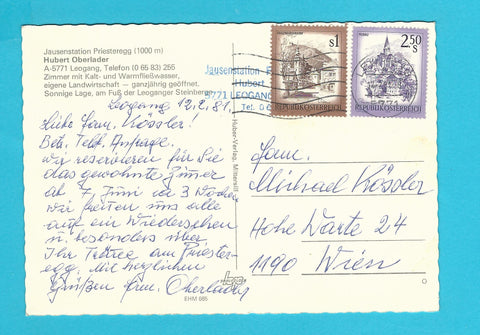 Jausenstation Priesteregg (1000 m)
Hubert Oberlader
A-5771 Leogang, Telefon (0 65 83) 255
Zimmer mit Kalt- und Warmfließwasser,
eigene Landwirtschaft — ganzjährig geöffnet.
Sonnige Lage, am Fuß der Leoganger Steinberge
Leogang 12.2.81
Liebe Fam. Kössler!
Bez. Telf. Anfrage.
Wir reservieren für Sie
das gewohnte Zimmer
ab 7. Juni ca 3 Wochen
Wir freuen uns alle
auf ein Wiedersehen
u. besonders über
Ihr am Priester-
egg. Mit herzlichen
Grüßen Fam. Oberlader
EHM 665
Huber-Verlag, Mittersill
Jausenstation
Hubert
5771 LEOGANG
Tel. 0 6
s1
REPUBLIK ÖSTERREICH
2.50 s
REPUBLIK ÖSTERREICH
Fam.
Michael Kössler
Hohe Warte 24
1190 Wien